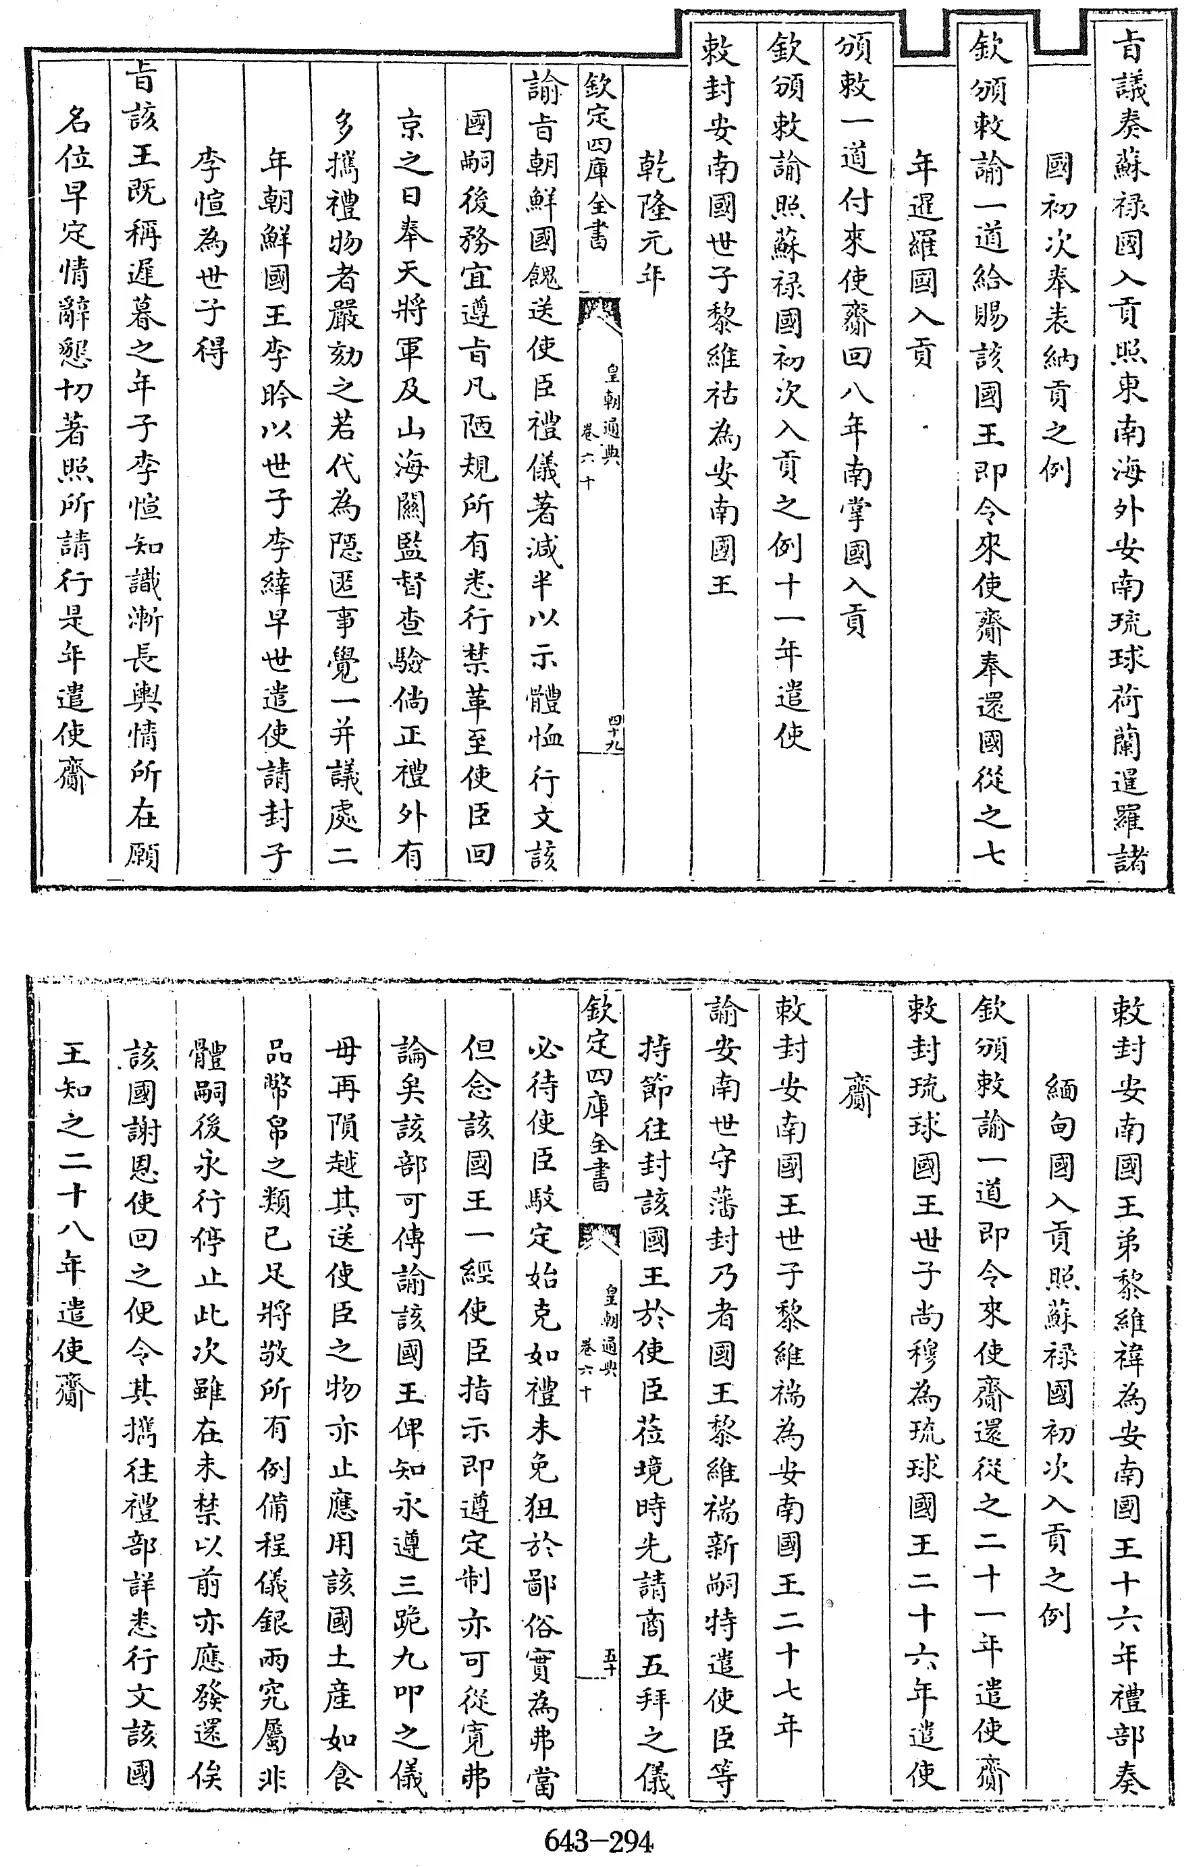 旨議奏蘇祿國入貢照東南海外安南琉球荷蘭暹羅諸
國初次奉表納貢之例
欽頒敕諭一道給賜該國王即令來使齎奉還國從之七
年暹羅國入貢
頒敕一道付來使齎回八年南掌國入貢
欽頒敕諭照蘇祿國初次入貢之例十一年遣使
敕封安南國世子黎維祜為安南國王
乾隆元年
欽定四庫全書
皇朝通典
卷六十
四十九
諭旨朝鮮國餽送使臣禮儀著減半以示體恤行文該
國嗣後務宜遵旨凡陋規所有悉行禁革至使臣回
京之日奉天將軍及山海關監督查驗倘正禮外有
多攜禮物者嚴劾之若代為隱匿事覺一并議處二
年朝鮮國王李昑以世子李緯早世遣使請封子
李愃為世子得
旨該王既稱遲暮之年子李愃知識漸長輿情所在願
名位早定情辭懇切著照所請行是年遣使齎
敕封安南國王弟黎維禕為安南國王十六年禮部奏
緬甸國入貢照蘇祿國初次入貢之例
欽頒敕諭一道即令來使齎還從之二十一年遣使齎
敕封琉球國王世子尚穆為琉球國王二十六年遣使
齎
敕封安南國王世子黎維褍為安南國王二十七年
諭安南世守藩封乃者國王黎維褍新嗣特遣使臣等
持節往封該國王於使臣蒞境時先請商五拜之儀
欽定四庫全書
皇朝通典
卷六十
五十
必待使臣駁定始克如禮未免狃於鄙俗實為弗當
但念該國王一經使臣指示即遵定制亦可從寬弗
論矣該部可傳諭該國王俾知永遵三跪九叩之儀
毋再隕越其送使臣之物亦止應用該國土產如食
品幣帛之類已足將敬所有例備程儀銀兩究屬非
體嗣後永行停止此次雖在未禁以前亦應發還俟
該國謝恩使回之便令其攜往禮部詳悉行文該國
王知之二十八年遣使齎
643-294